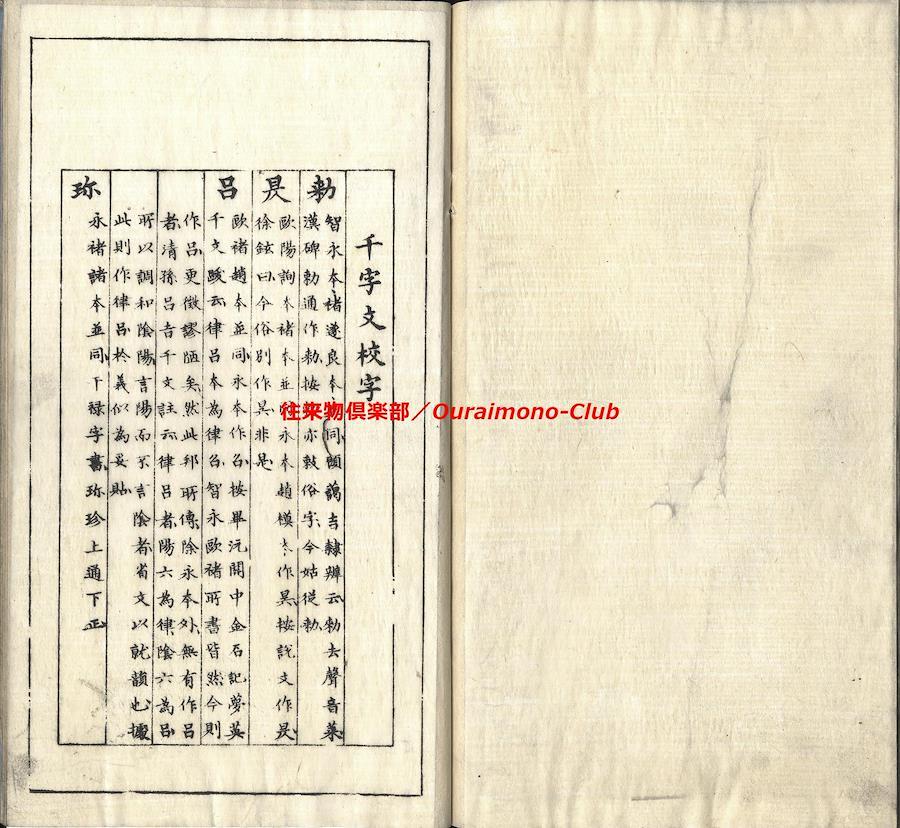 千字文校字
勑
智永本褚遂良本同顧藹吉隸辨云勑去聲音萊
漢碑勑通作勅按亦敕俗字今姑從勑
是
歐陽詢本褚本並永本趙模本作昰按說文作昰
徐鉉曰今俗別作昰非是
呂
歐褚趙本並同永本作吕按畢沅關中金石記夢英
千文跋云律呂本為律召智永歐褚所書皆然今則
作呂更徵謬陋矣然此邦所傳除永本外無有作召
者清孫呂吉千文註云律呂者陽六為律陰六為呂
所以調和陰陽言陽而不言陰者省文以就韻也據
此則作律呂於義似為妥貼
珎
永褚諸本並同干祿字書珎珍上通下正
往来物倶楽部／Ouraimono-Club